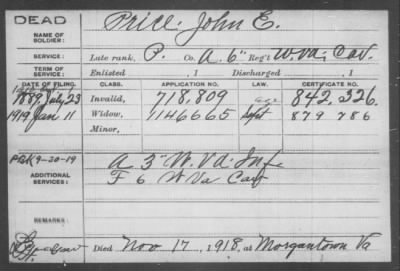 DEAD
NAME OF SOLDIER: Price, John E.
SERVICE: Late rank, P. Co. A. 6" Reg't W. Va; Cav.
TERM OF SERVICE: Enlisted , 1 Discharged , 1
DATE OF FILING. CLASS. APPLICATION NO. LAW. CERTIFICATE NO.
1889 July 23 Invalid, 718,809 age 842,326.
1919 Jan 11 Widow, 1146665 Sept 879786
Minor,
PBK 9-20-19
ADDITIONAL SERVICES: A 3" W. Va. Inf.
F 6 W Va Cav
REMARKS:
Died Nov 17, 1918, at Morgantown Va